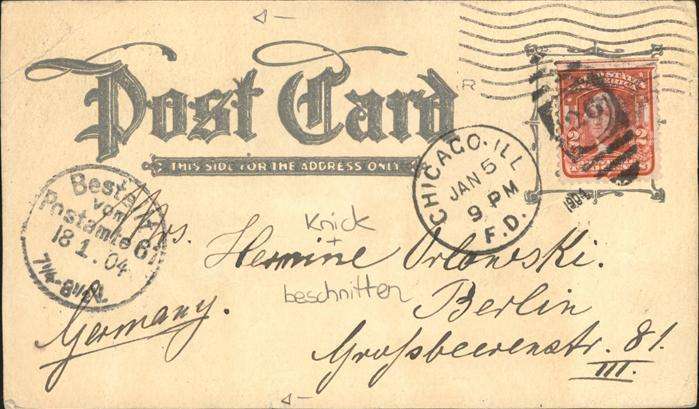 Post Card
THIS SIDE FOR THE ADDRESS ONLY
R
CHICAGO, ILL
JAN 5
9 PM
F. D.
1904
2
Bestellt
vom
Postamte 61
18 1. 04
7¼-8½ V.
Mrs.
Knick
+
beschnitten
Hermine Orlowski.
Berlin
Grossbeerenstr. 81.
III.
Germany.